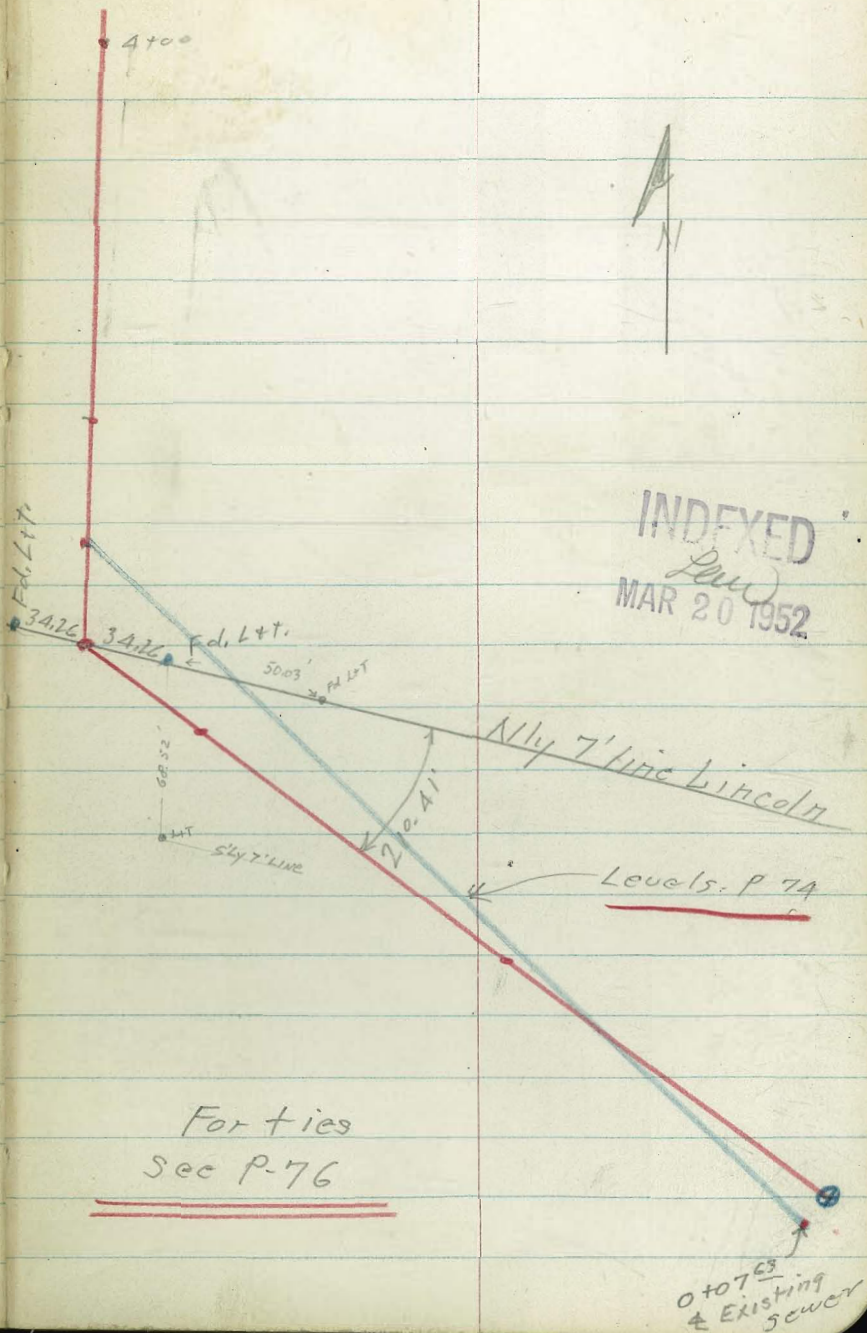 4+00
N
INDEXED
MAR 20 1952
Fd. L+t.
34.26
34.26
Fd. L+t.
50.03'
Fd L+T
N'ly 7' line Lincoln
68.52'
L+T
S'LY 7' LINE
21°.41'
Levels. P 74
For ties
See P-76
0+07 63
Existing
sewer